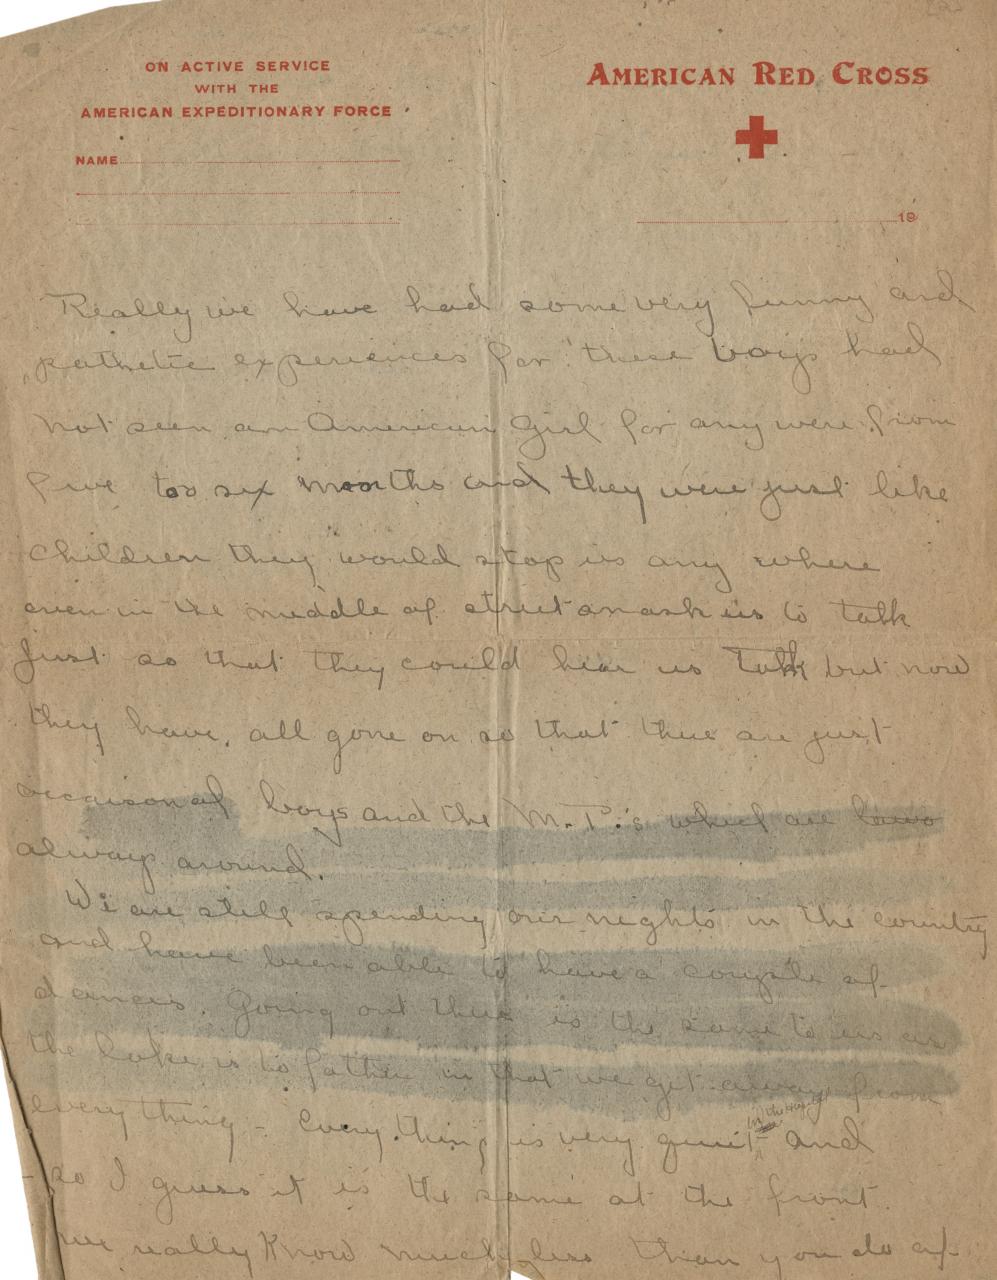 ON ACTIVE SERVICE
WITH THE
AMERICAN EXPEDITIONARY FORCE
NAME
AMERICAN RED CROSS
19
Really we have had some very funny and
pathetic experiences for these boys had
not seen an American Girl for any were from
five too six months and they were just like
children they would stop us any where
even in the middle of street an ask us to talk
just so that they could hear us talk but now
they have, all gone on so that there are just
occaisonal boys and the M.P.'s which are
always around.
We are still spending our nights in the country
and have been able to have a couple of
dances. Going out there is the same to us as
the lake is to father in that we get away from
everything - Every thing is very quiet in the Hospital and
so I guess it is the same at the front.
We really know much less than you do of